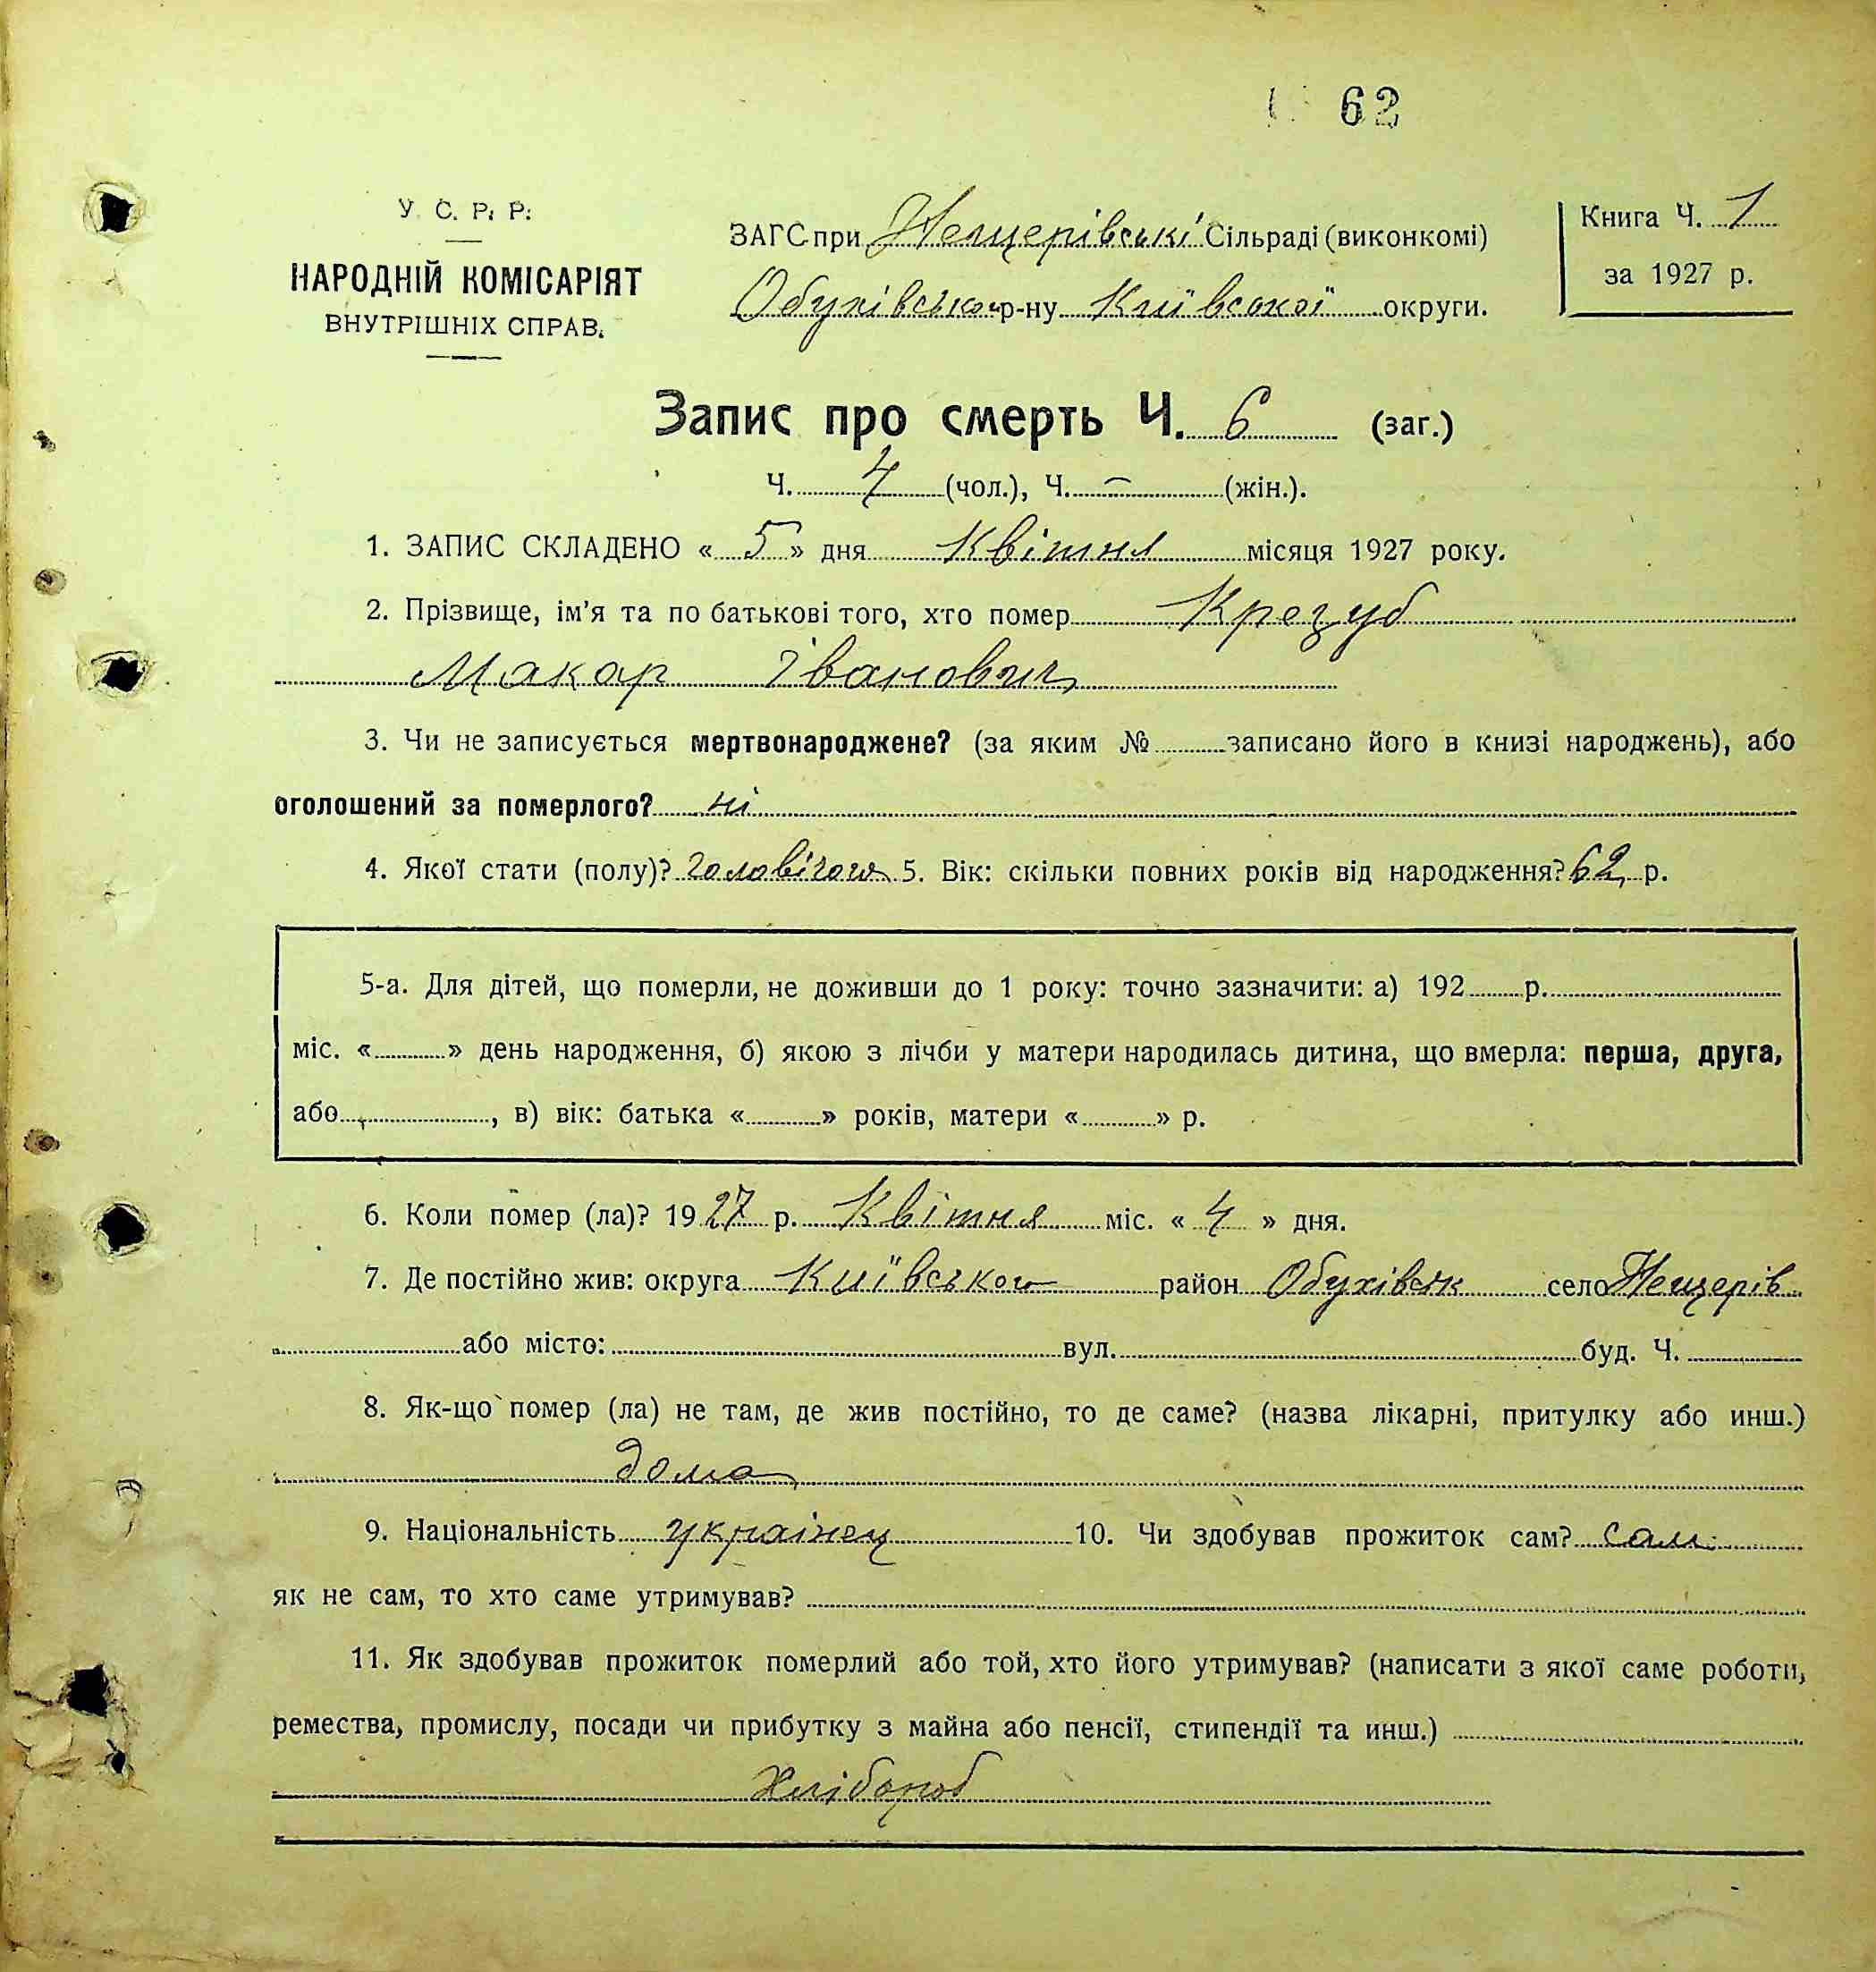 62
У. С. Р. Р.
НАРОДНІЙ КОМІСАРІЯТ
ВНУТРІШНІХ СПРАВ.
ЗАГС при Нещерівські Сільраді (виконкомі)
Обухівсько р-ну Київської округи.
Книга Ч. 1
за 1927 р.
Запис про смерть Ч. 6 (заг.)
Ч. 4 (чол.), Ч. — (жін.).
1. ЗАПИС СКЛАДЕНО « 5 » дня Квітня місяця 1927 року.
2. Прізвище, ім'я та по батькові того, хто помер Крегуб
Макар Іванович
3. Чи не записується мертвонароджене? (за яким № записано його в книзі народжень), або
оголошений за померлого? ні
4. Якої стати (полу)? чоловічоя 5. Вік: скільки повних років від народження? 62 р.
5-а. Для дітей, що померли, не доживши до 1 року: точно зазначити: а) 192 р.
міс. « » день народження, б) якою з лічби у матери народилась дитина, що вмерла: перша, друга,
або , в) вік: батька « » років, матери « » р.
6. Коли помер (ла)? 1927 р. Квітня міс. « 4 » дня.
7. Де постійно жив: округа Київською район Обухівськ село Нещерів
або місто: вул. буд. Ч.
8. Як-що помер (ла) не там, де жив постійно, то де саме? (назва лікарні, притулку або инш.)
дома
9. Національність українец 10. Чи здобував прожиток сам? сам
як не сам, то хто саме утримував?
11. Як здобував прожиток померлий або той, хто його утримував? (написати з якої саме роботи,
ремества, промислу, посади чи прибутку з майна або пенсії, стипендії та инш.)
Хлібороб